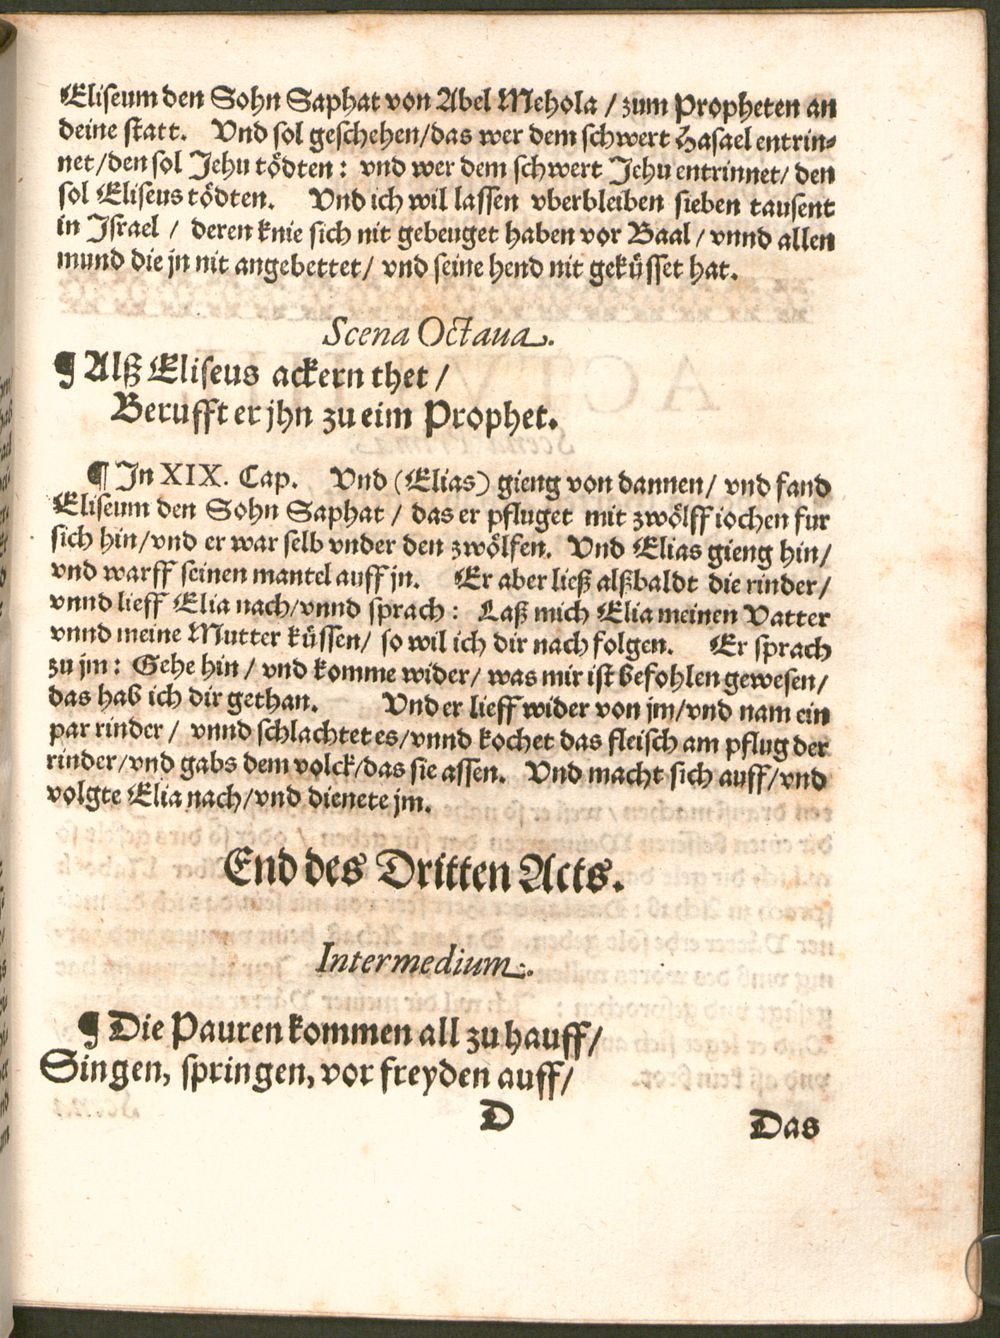 Eliseum den Sohn Saphat von Abel Mehola / zum Propheten an
deine statt. Vnd sol geschehen/das wer dem schwert Hasael entrin-
net/den sol Jehu tödten: vnd wer dem schwert Jehu entrinnet/ den
sol Eliseus tödten. Vnd ich wil lassen vberbleiben sieben tausent
in Jsrael / deren knie sich nit gebeuget haben vor Baal / vnnd allen
mund die jn nit angebettet/ vnd seine hend nit geküsset hat.
Scena Octaua.
¶ Alß Eliseus ackern thet /
Berufft er jhn zu eim Prophet.
¶ Jn XIX. Cap. Vnd (Elias) gieng von dannen/ vnd fand
Eliseum den Sohn Saphat / das er pfluget mit zwölff iochen fur
sich hin/vnd er war selb vnder den zwölfen. Vnd Elias gieng hin/
vnd warff seinen mantel auff jn. Er aber ließ alßbaldt die rinder/
vnnd lieff Elia nach/vnnd sprach: Laß mich Elia meinen Vatter
vnnd meine Mutter küssen/ so wil ich dir nach folgen. Er sprach
zu jm: Gehe hin / vnd komme wider/ was mir ist befohlen gewesen/
das hab ich dir gethan. Vnd er lieff wider von jm/vnd nam ein
par rinder / vnnd schlachtet es/vnnd kochet das fleisch am pflug der
rinder/vnd gabs dem volck/das sie assen. Vnd macht sich auff/vnd
volgte Elia nach/vnd dienete jm.
End des Dritten Acts.
Intermedium.
¶ Die Pauren kommen all zu hauff/
Singen, springen, vor freyden auff/
D Das